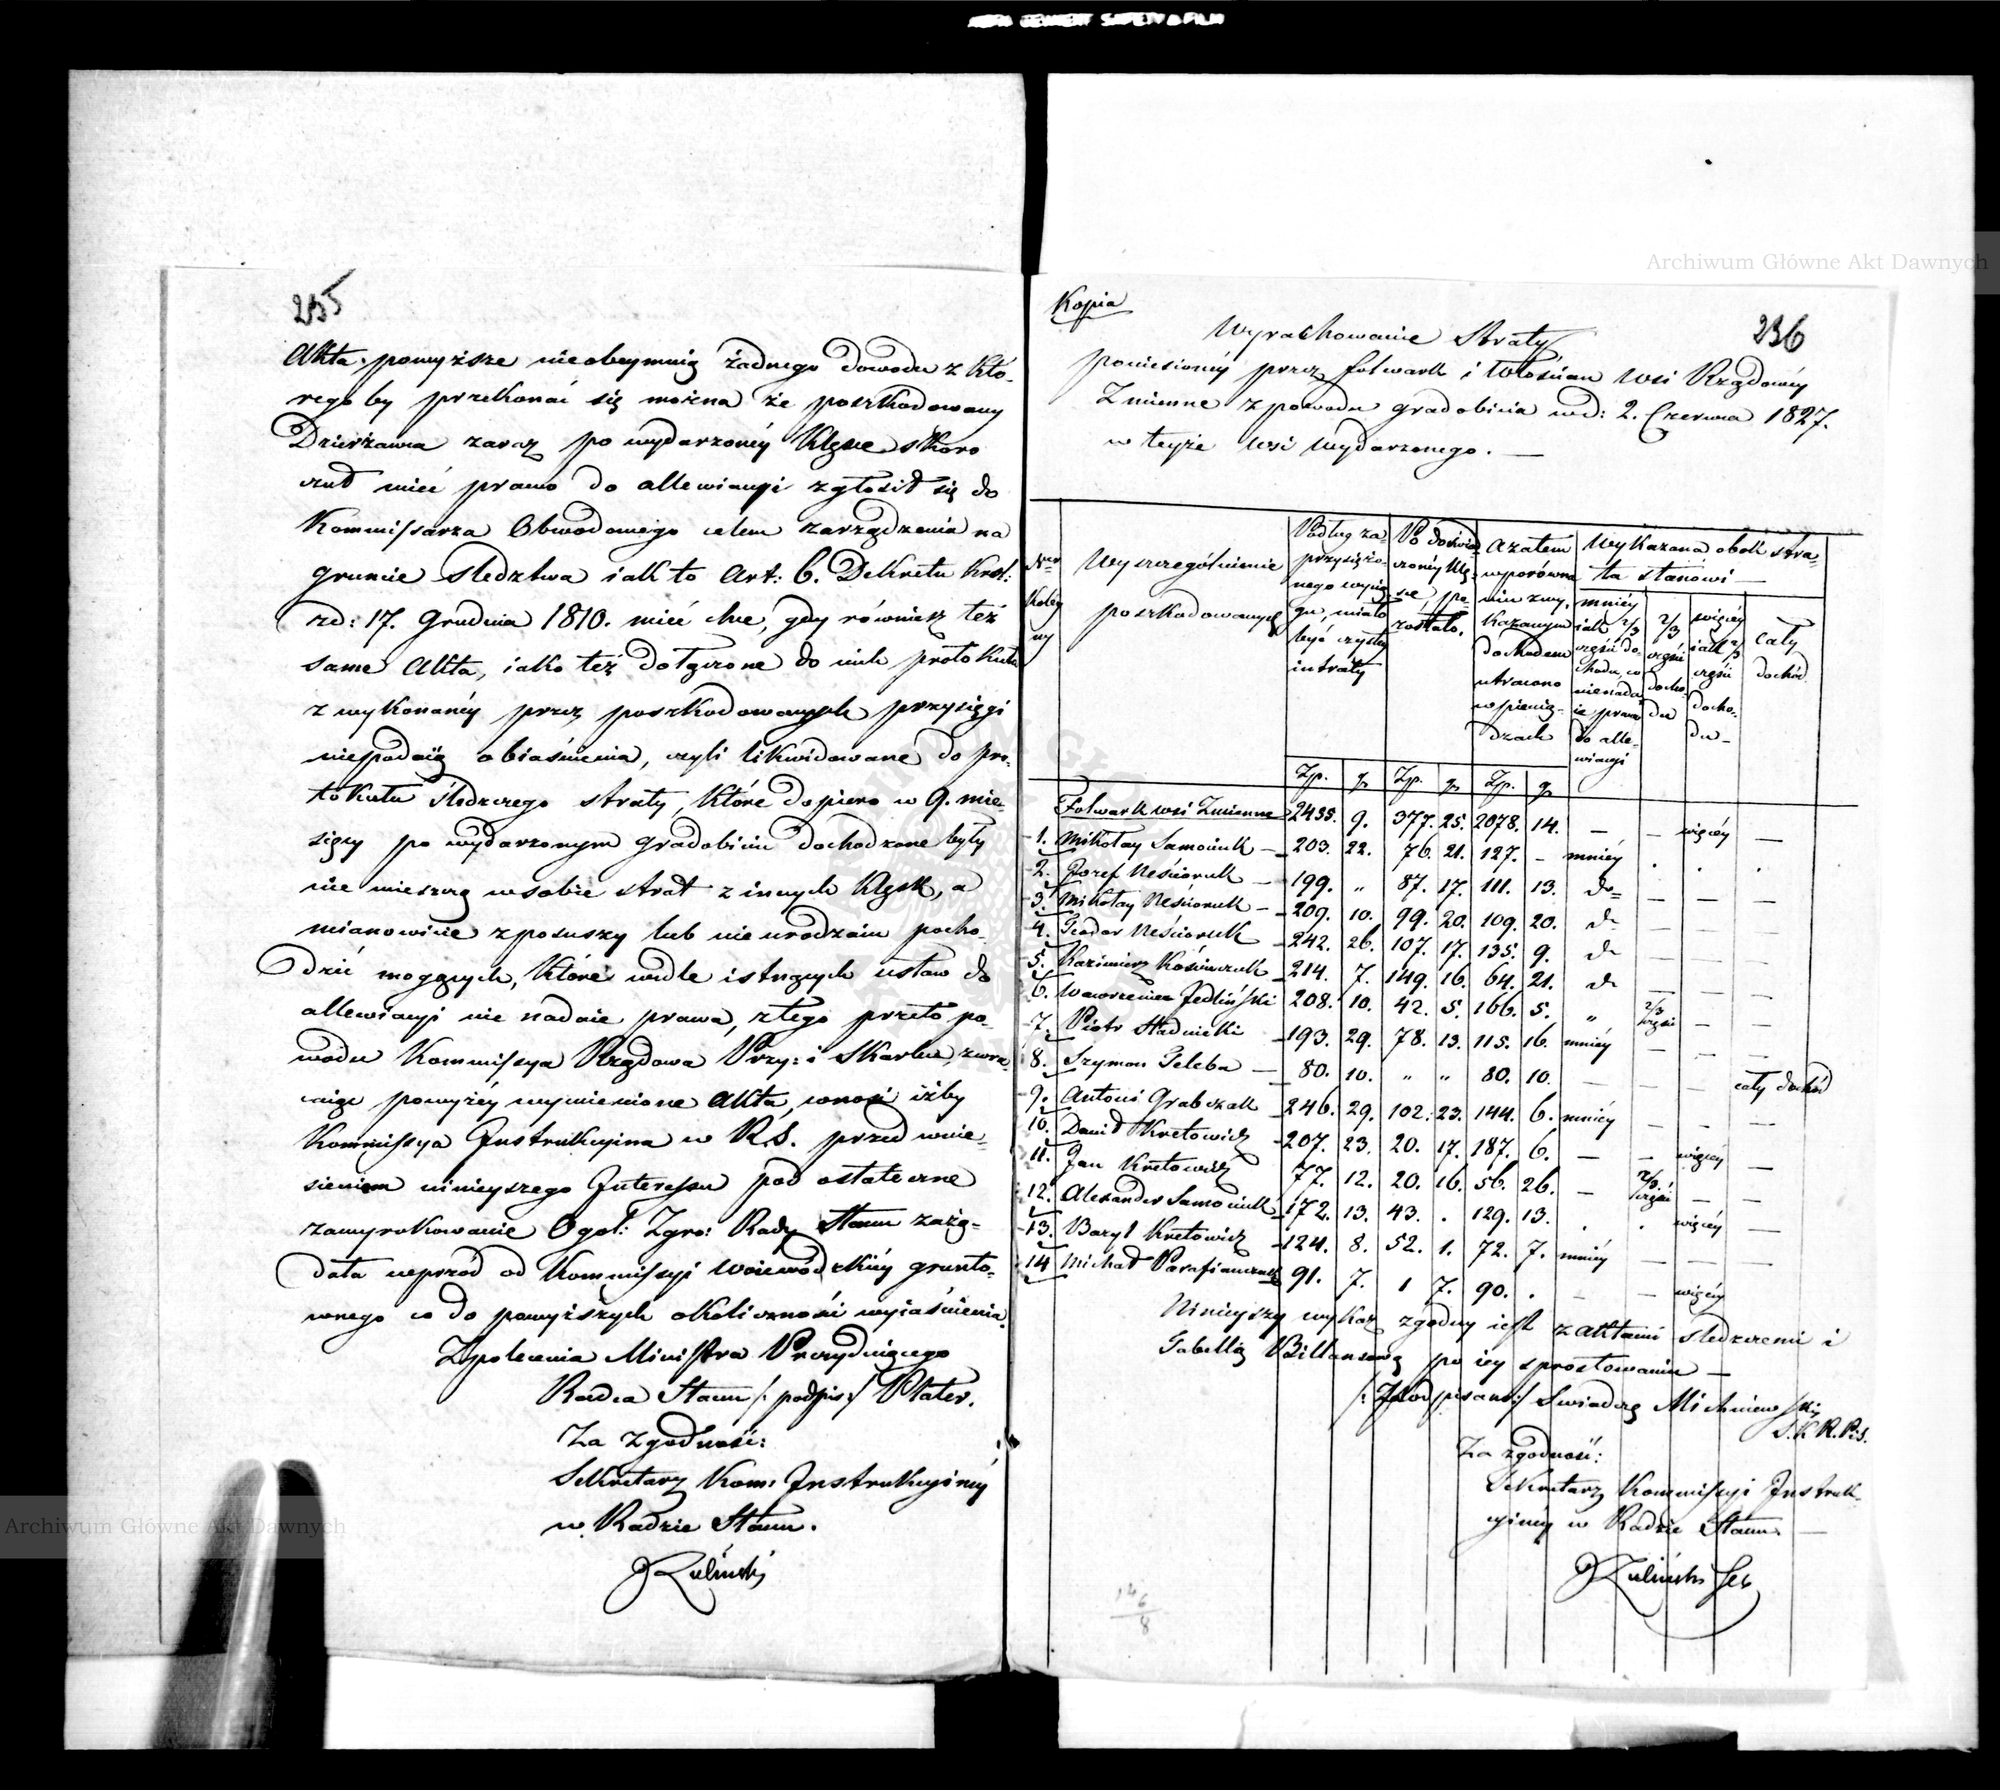 235
Akta powyższe nieobeymuią żadnego dowodu z któ-
rego by przekonać się można że poszkodowany
Dzierżawca zaraz po wydarzoney klęsce skoro
czuł mieć prawo do allewiacyi zgłosił się do
Kommissarza Obwodowego celem zarządzenia na
gruncie Sledztwa iak to Art: 6. Dekretu Król:
zd: 17. Grudnia 1810. mieć chce, gdy również też
same Akta, iako też dołączone do nich protokuła
z wykonaney przez poszkodowanych przysięgi
niepodaią obiaśnienia, czyli likwidowane do pro-
tokułu śledczego straty, które dopiero w 9. mie-
sięcy po wydarzonym gradobiciu dochodzone były
nie mieszczą w sobie strat z innych klęsk, a
mianowicie z posuszy lub nieurodzaiu pocho-
dzić mogących, które wedle istnących ustaw do
allewiacyi nie nadaie prawa, z tego przeto po-
wodu Kommissya Rządowa Przy: i Skarbu, zwra-
caiąc powyżey wymienione Akta, wnosi iżby
Kommissya Instrukcyina w R.S. przed wnie-
sieniem ninieyszego Interessu pod ostateczne
zawyrokowanie Ogol: Zgro: Rady Stanu zażą-
dała wprzód od Kommissyi Woiewódzkiey grunto-
wnego co do powyższych okoliczności wyiaśnienia.
Zpolecenia Ministra Prezyduiącego
Radca Stanu /: podpis :/ Plater.
Za zgodność:
Sekretarz Kom: Instrukcyiney
w Radzie Stanu.
Zieliński
Kopia
236
Wyrachowanie Straty
poniesioney przez folwark i Włościan Wsi Rządowey
Żmienne z powodu gradobicia w d: 2. Czerwca 1827.
w teyże wsi wydarzonego. —
Ner koley ny
Wyszczególnienie poszkodowanych
Podług za- przysiężo- nego wycią- gu, miało być czystey intraty
Po doświad- czoney klę- sce, po- zostało.
a zatem w porówna- niu z wy- kazanym dochodem utracono w pienią- dzach
Wykazana obok stra- ta stanowi —
mniey iak 2/3 części do- chodu, co nie nada- ie prawa do alle- wiacyi
2/3 części docho- du
więcey iak 2/3 części docho- du –
cały dochód
Zp. g. Zp. g. Zp. g.
Folwark wsi Żmienne 2455. 9. 377. 25. 2078. 14. — — więcey —
1. Mikołay Samociuk — 203. 22. 76. 21. 127. – mniey . . .
2. Jozef Neścioruk — 199. „ 87. 17. 111. 13. do= — — —
3. Mikołay Neścioruk — 209. 10. 99. 20. 109. 20. do — — —
4. Teodor Neścioruk 242. 26. 107. 17. 135. 9. do — — —
5. Kazimierz Kościuczuk 214. 7. 149. 16. 64. 21. do — — —
6. Wawrzeniec Jedliński 208. 10. 42. 5. 166. 5. „ 2/3 części — —
7. Piotr Stadnicki 193. 29. 78. 13. 115. 16. mniey — — —
8. Szymon Teleba — 80. 10. „ „ 80. 10. — — — cały dochód
9. Antoni Grabczak 246. 29. 102. 23. 144. 6. mniey — — —
10. Dawid Kretowicz 207. 23. 20. 17. 187. 6. — — więcey —
11. Jan Kretowicz 77. 12. 20. 16. 56. 26. — 2/3 części — —
12. Alexander Samociuk 172. 13. 43. . 129. 13. . . więcey —
13. Bazyl Kretowicz 124. 8. 52. 1. 72. 7. mniey — — —
14 Michał Parafianczuk 91. 7. 1 7. 90. . – – więcey
Ninieyszy wykaz zgodny iest z aktami śledczemi i
Tabellą Billansową po iey sprostowaniu —
/: Podpisano :/ Swiadczę Michniewski
S. K R. P. S.
Za zgodność:
Sekretarz Kommissyi Instruk-
cyiney w Radzie Stanu —
Zieliński Sek
146
8
Archiwum Główne Akt Dawnych
Archiwum Główne Akt Dawnych